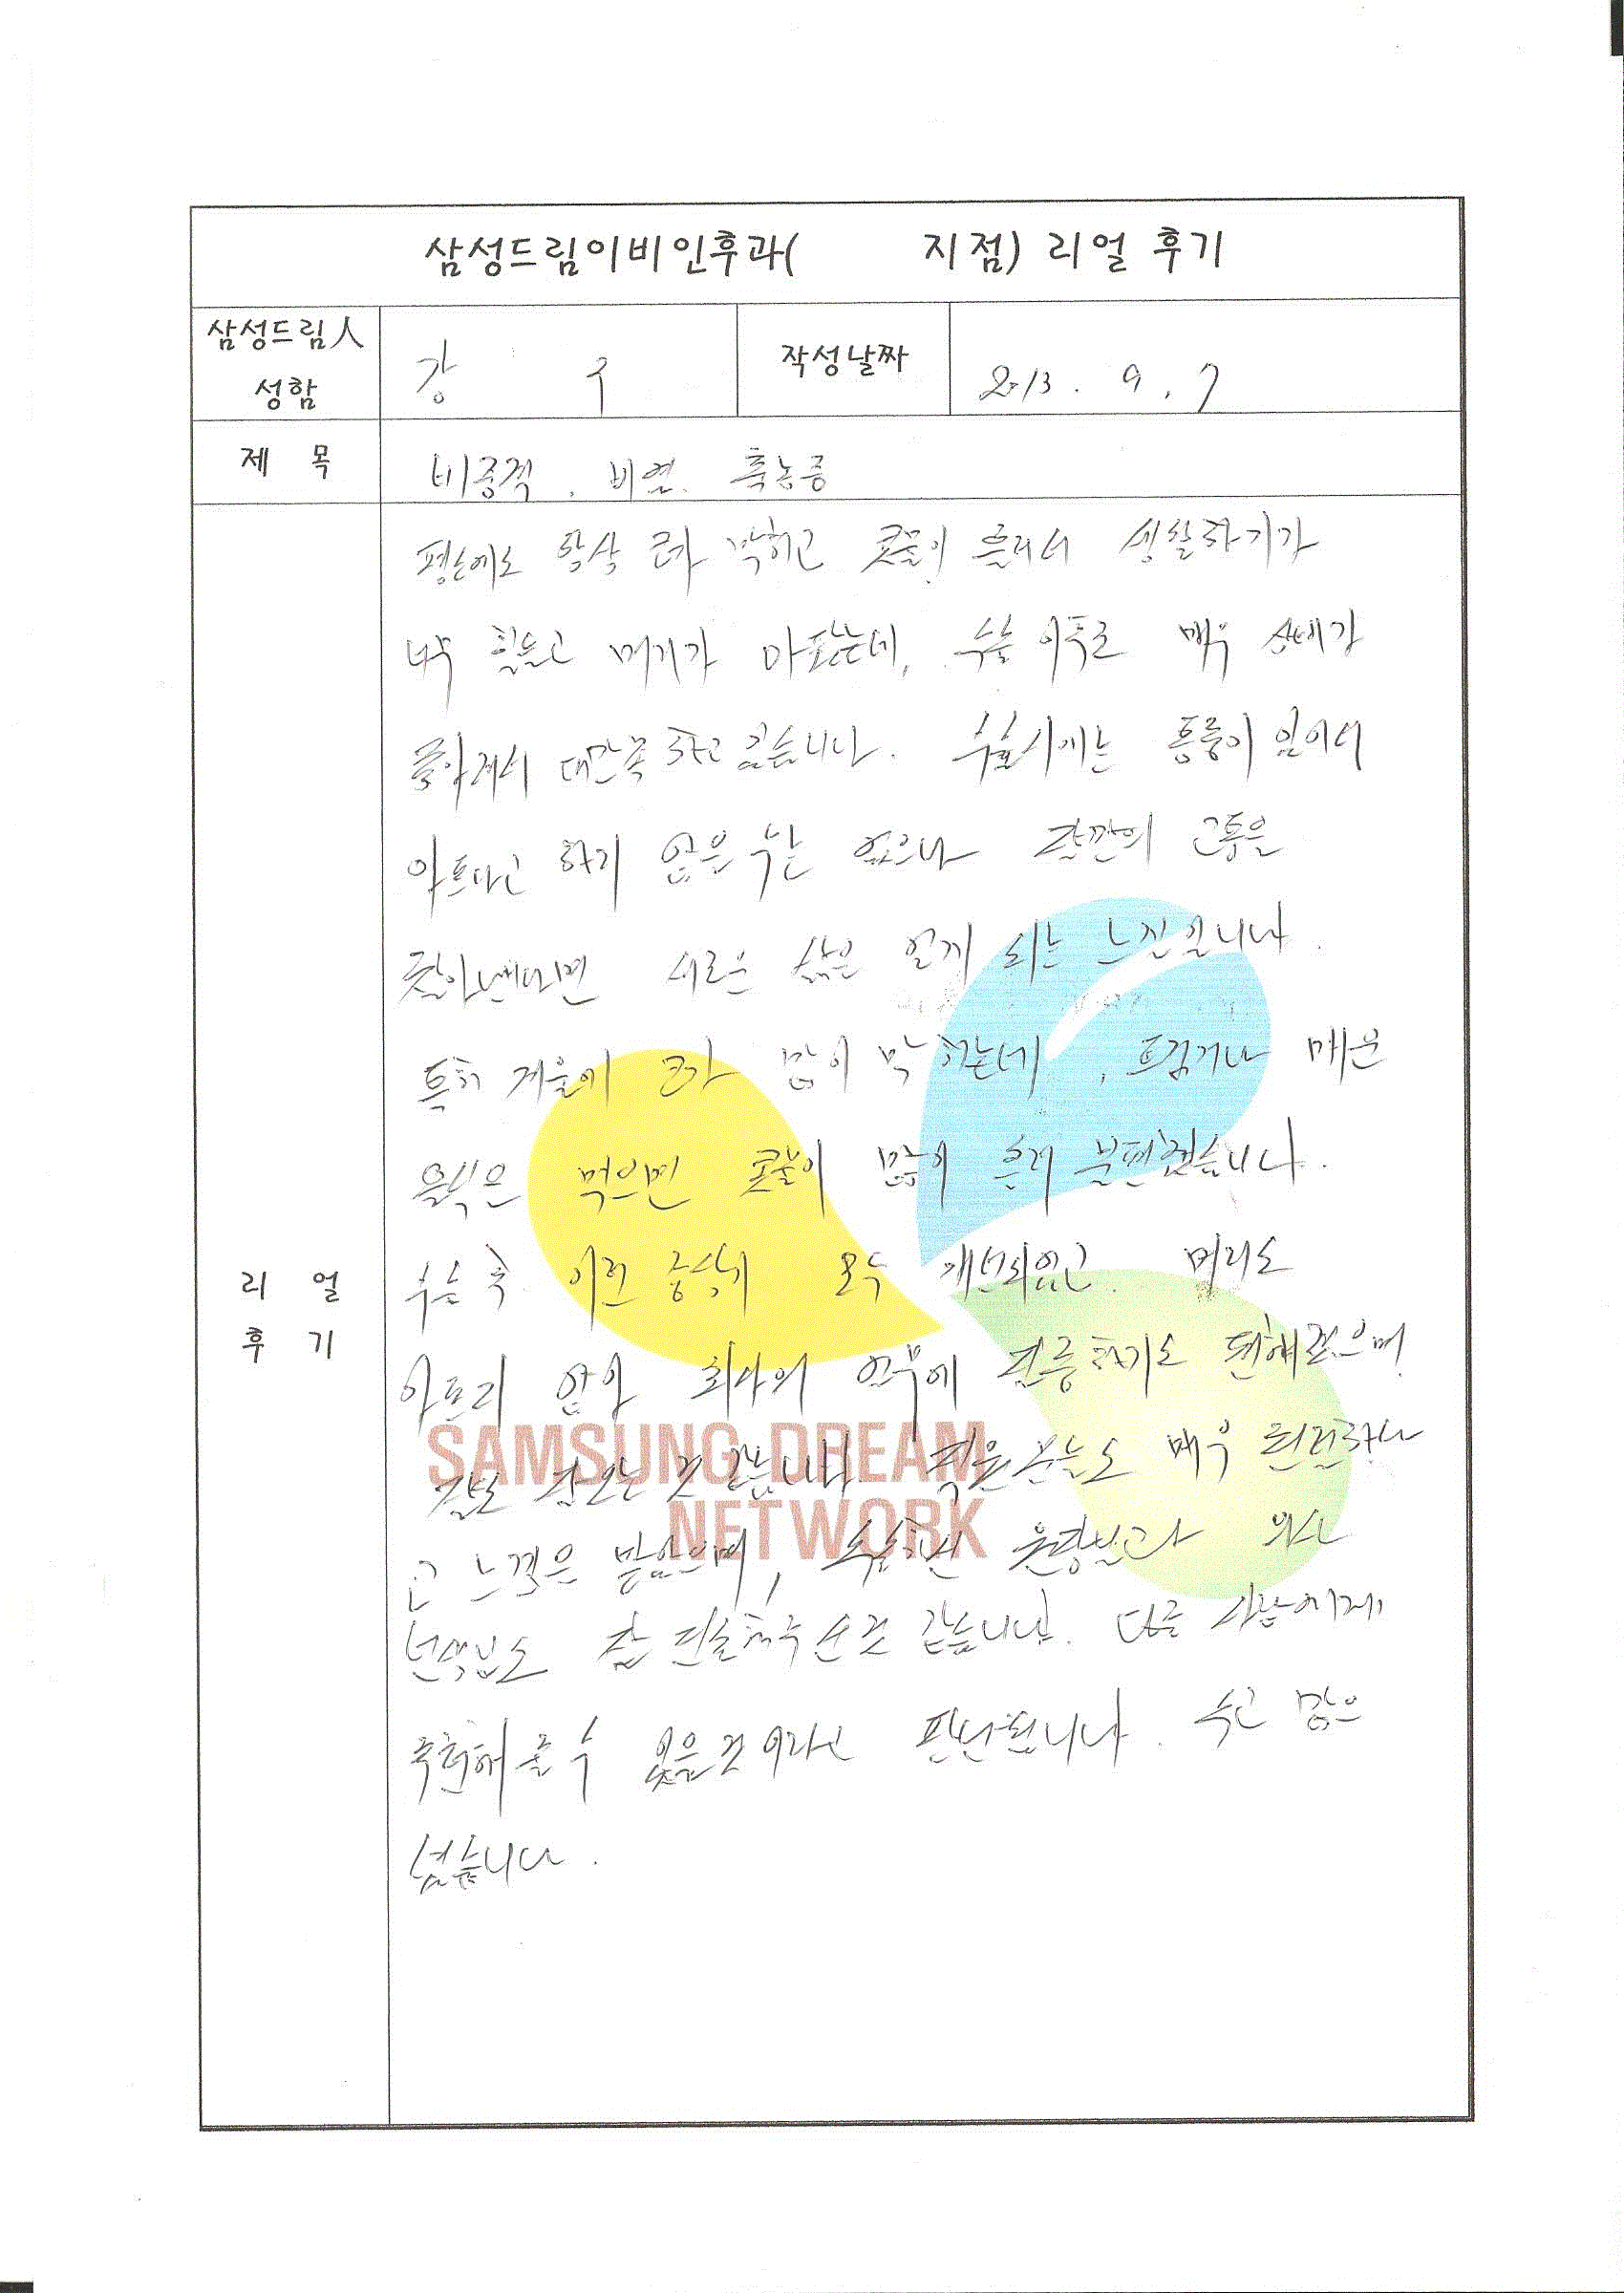 삼성드림이비인후과(          지점) 리얼 후기
삼성드림人
성함
강 수
작성날짜
2013. 9. 7
제 목
비중격, 비염, 축농증
리 얼
후 기
평소에도 항상 코가 막히고 콧물이 흘러서 생활하기가
너무 힘들고 머리가 아팠는데, 수술 이후로 매우 상태가
좋아져서 대만족하고 있습니다. 수술시에는 통증이 있어서
아프다고 하지 않을 수는 없으나 잠깐의 고통은
참아낸다면 새로운 삶은 얻게 되는 느낌입니다.
특히 겨울에 코가 많이 막히는데, 뜨겁거나 매운
음식은 먹으면 콧물이 많이 흘러 불편했습니다.
수술 후 이런 증상이 모두 개선되었고 머리도
아프지 않아 회사의 업무에 집중하기도 편해졌으며
잠도 잘오는 것 같습니다. 직원분들도 매우 친절하다
고 느낌은 받았으며, 수술하신 원장님과 의사
선생님도 잘 진술해주신것 같습니다. 다른 사람에게
추천해 줄 수 있을것이라고 판단됩니다. 수고 많으
셨습니다.
SAMSUNG DREAM
NETWORK